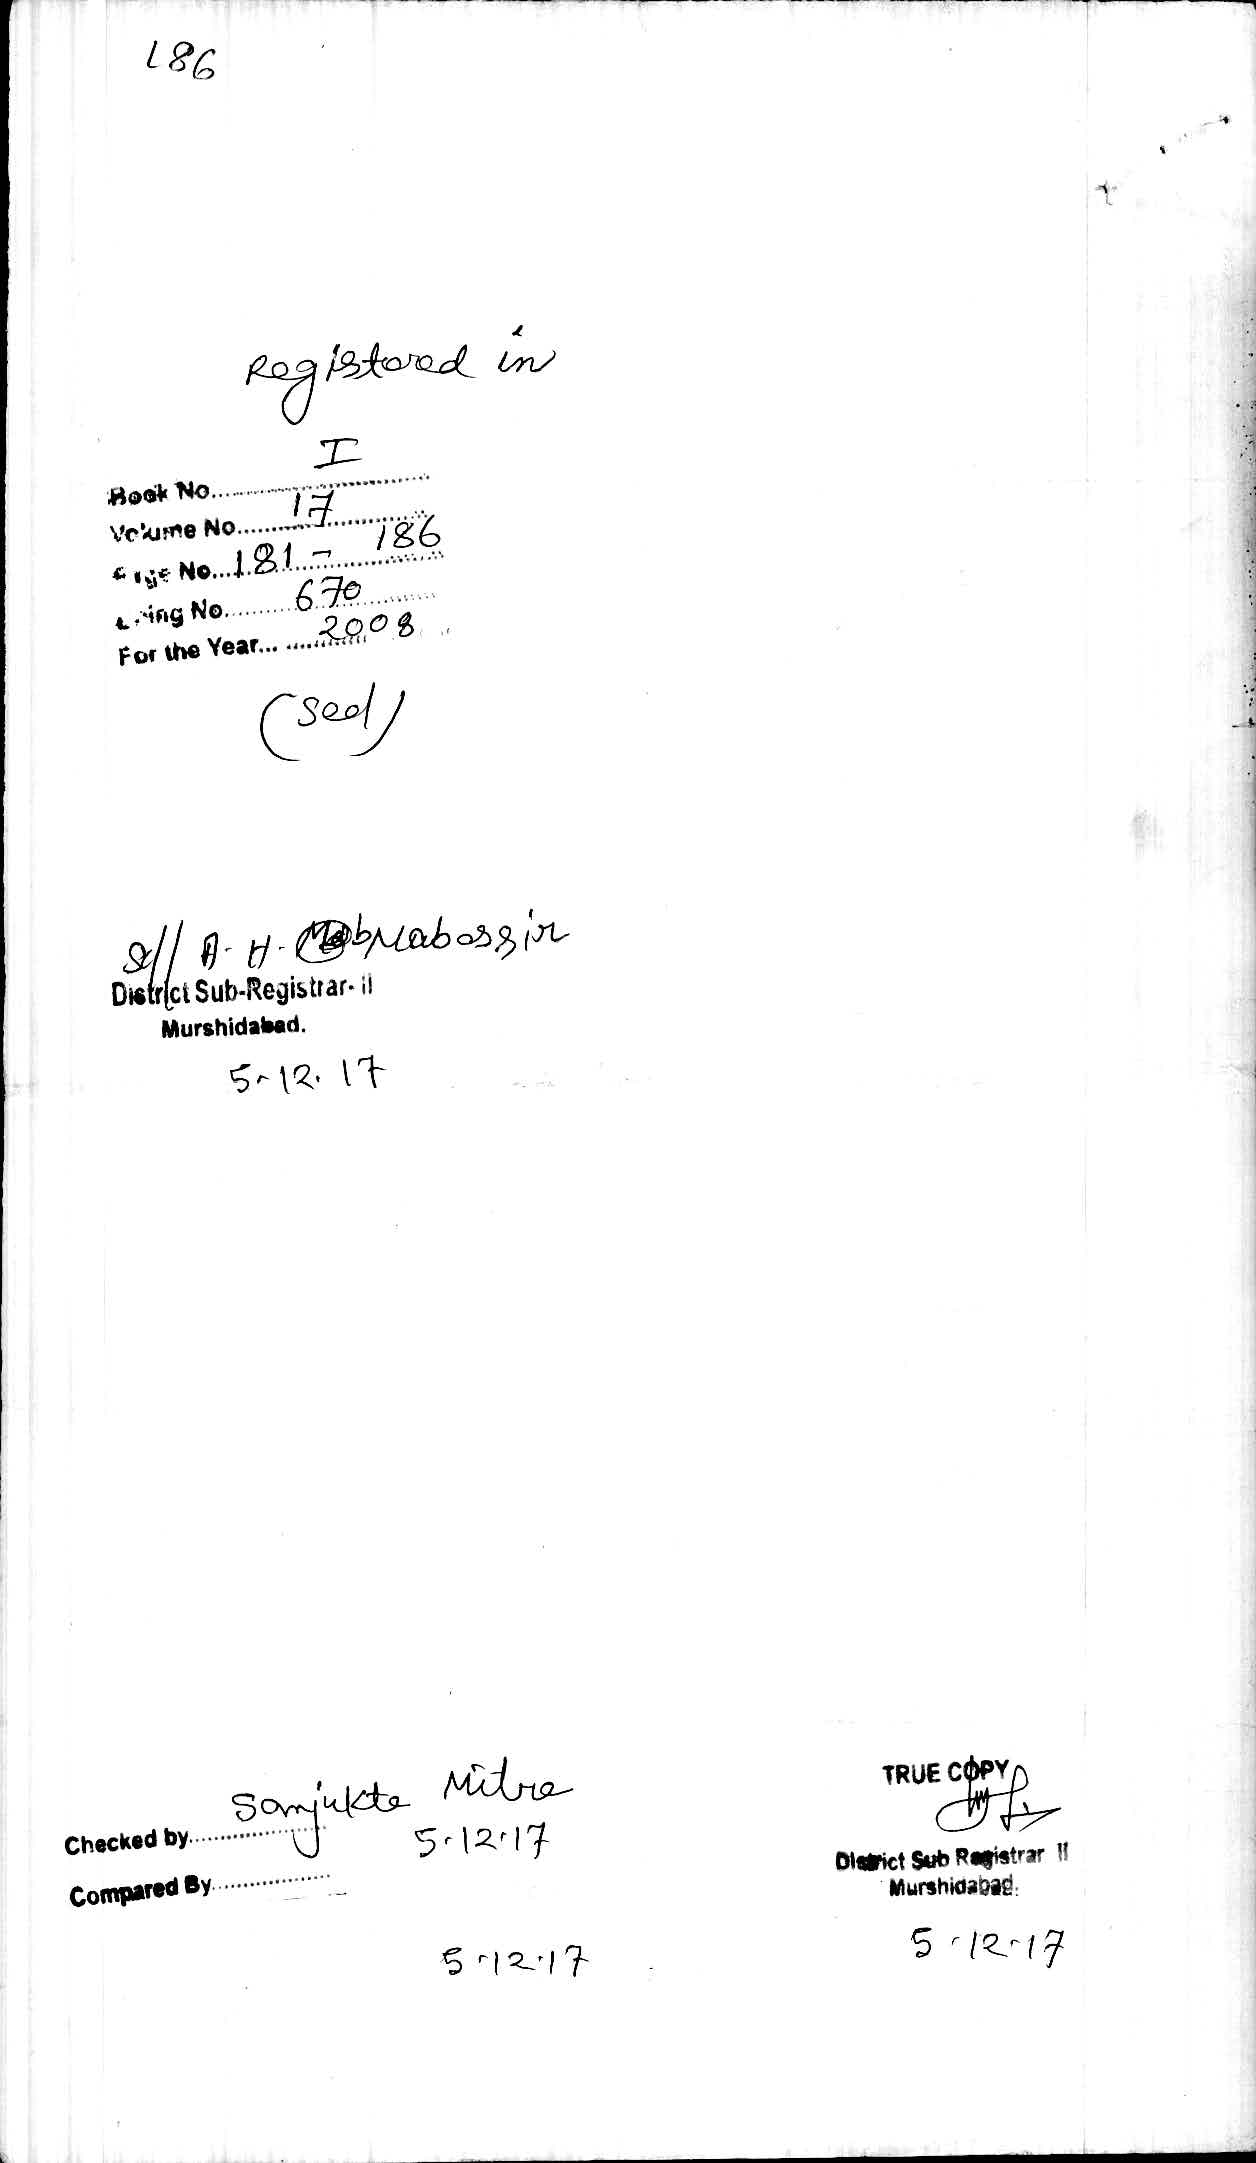 186
Registered in
Book No. I
Volume No. 17
Page No. 181 - 186
Being No. 670
For the Year... 2008
(Seal)
Sd// A. H.
District Sub-Registrar- II
Murshidabad.
5-12. 17
Sanjukta Mitra
Checked by 5.12.17
Compared By
5.12.17
TRUE COPY
District Sub Registrar II
Murshidabad.
5-12-17